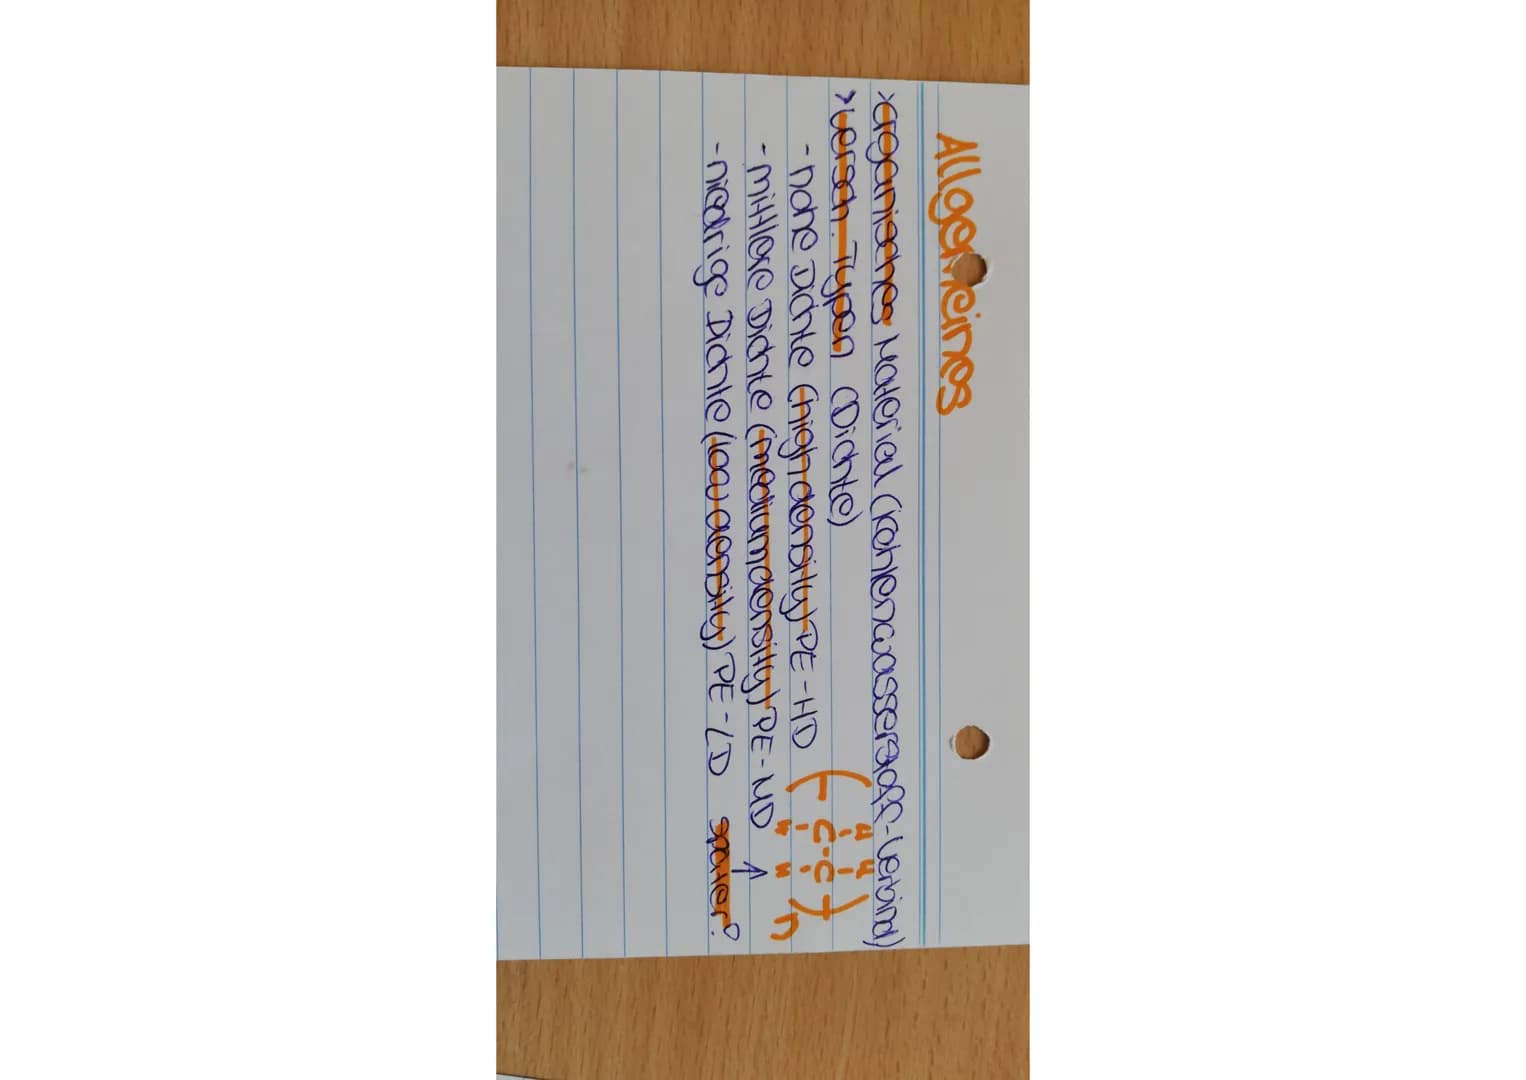 Allgemeines
>organisches Material (Kohlenwasserstoff-Verbind)
>versch. Typen (Dichte)
- hohe Dichte (high density) PE-HD
- mittlere Dichte (medium density) PE-MD
- niedrige Dichte (low density) PE-LD später?
H H
(-C-C-)
H H n